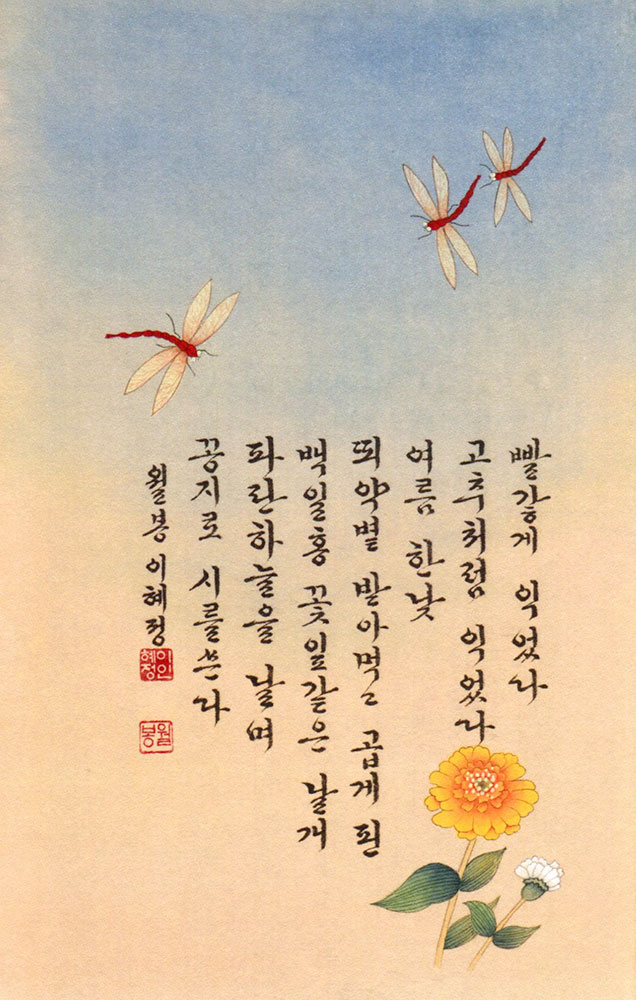 빨갛게 익었나
고추처럼 익었나
여름 한낮
뙤약볕 받아먹고 곱게 핀
백일홍 꽃잎같은 날개
파란하늘을 날며
꽁지로 시를쓴다
월봉 이혜정
이인
혜정
월봉